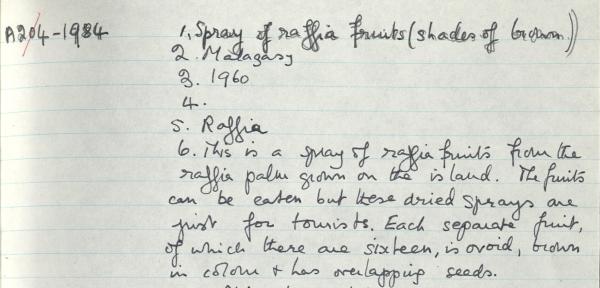 A204-1984 1. Spray of raffia fruits (shades of brown.)
2. Malagasy
3. 1960
4.
5. Raffia
6. This is a spray of raffia fruits from the
raffia palm grown on the island. The fruits
can be eaten but these dried sprays are
just for tourists. Each separate fruit,
of which there are sixteen, is ovoid, brown
in colour & has overlapping seeds.